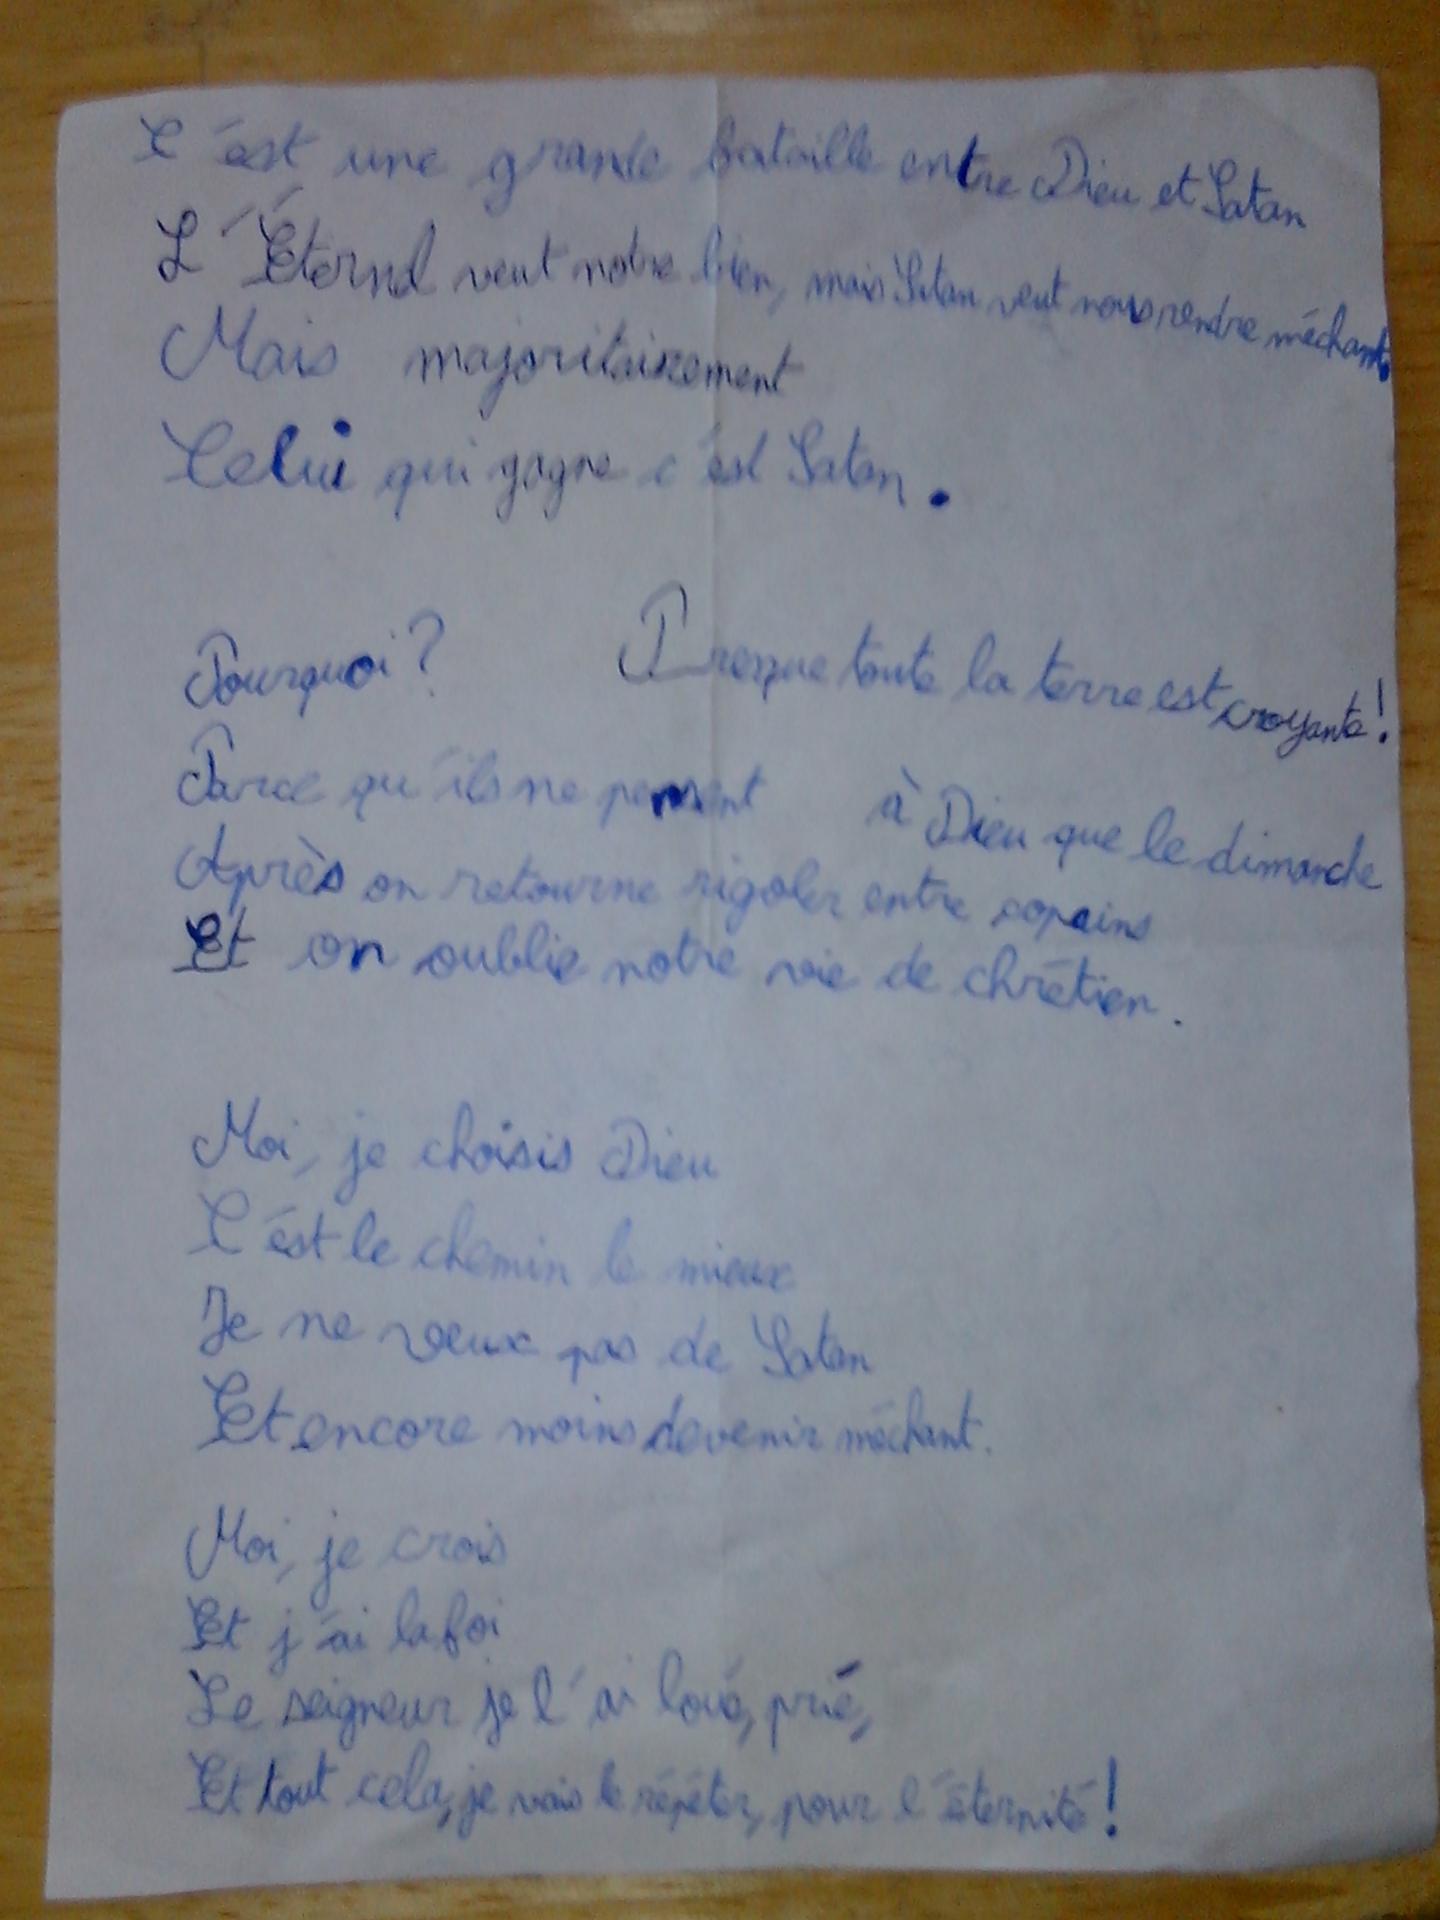 C'est une grande bataille entre Dieu et Satan
L'Éternel veut notre bien, mais Satan veut nous rendre méchant.
Mais majoritairement
Celui qui gagne c'est Satan.
Pourquoi? Presque toute la terre est croyante!
Parce qu'ils ne pensent à Dieu que le dimanche
Après on retourne rigoler entre copains
Et on oublie notre vie de chrétien.
Moi, je choisis Dieu
C'est le chemin le mieux
Je ne veux pas de Satan
Et encore moins devenir méchant.
Moi, je crois
Et j'ai la foi
Le seigneur je l'ai loué, prié,
Et tout cela, je vais le répéter, pour l'éternité!